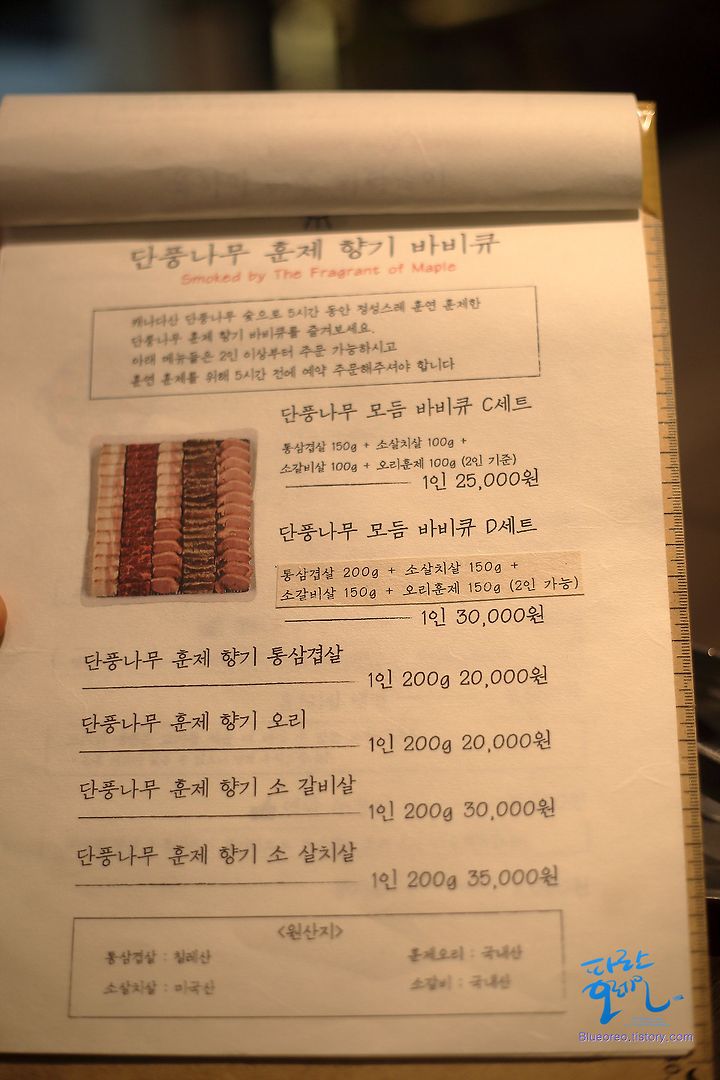 단풍나무 훈제 향기 바비큐
Smoked by The Fragrant of Maple
캐나다산 단풍나무 숯으로 5시간 동안 정성스레 훈연 훈제한
단풍나무 훈제 향기 바비큐를 즐겨보세요.
아래 메뉴들은 2인 이상부터 주문 가능하시고
훈연 훈제를 위해 5시간 전에 예약 주문해주셔야 합니다
단풍나무 모듬 바비큐 C세트
통삼겹살 150g + 소살치살 100g +
소갈비살 100g + 오리훈제 100g (2인 기준)
1인 25,000원
단풍나무 모듬 바비큐 D세트
통삼겹살 200g + 소살치살 150g +
소갈비살 150g + 오리훈제 150g (2인 가능)
1인 30,000원
단풍나무 훈제 향기 통삼겹살
1인 200g 20,000원
단풍나무 훈제 향기 오리
1인 200g 20,000원
단풍나무 훈제 향기 소 갈비살
1인 200g 30,000원
단풍나무 훈제 향기 소 살치살
1인 200g 35,000원
<원산지>
통삼겹살 : 칠레산 훈제오리 : 국내산
소살치살 : 미국산 소갈비 : 국내산
파란
오레오
Blueoreo.tistory.com